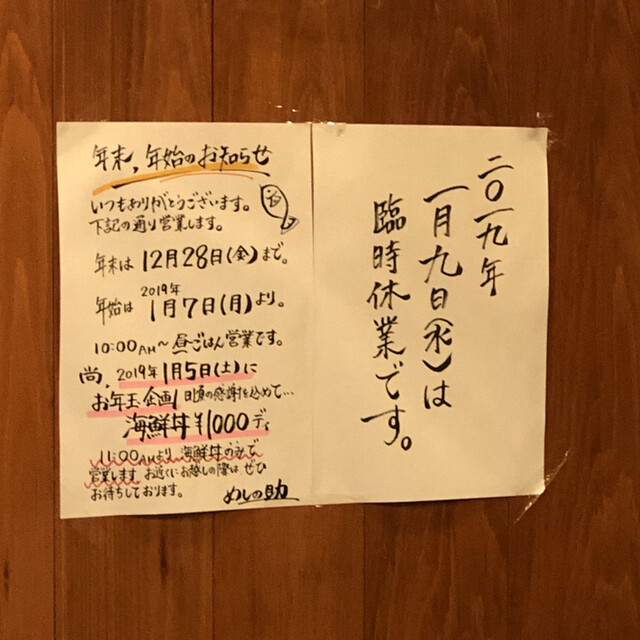 年末,年始のお知らせ
いつもありがとうございます。
下記の通り営業します。
年末は12月28日(金)まで。
2019年
年始は1月7日(月)より。
10:00AM〜昼ごはん営業です。
尚,2019年1月5日(土)に
お年玉企画!日頃の感謝を込めて…
海鮮丼¥1000デス
11:00AMより 海鮮丼のみで
営業します お近くにお越しの際は ぜひ
お待ちしております。
めしの助
二〇一九年
一月九日(水)は
臨時休業です。